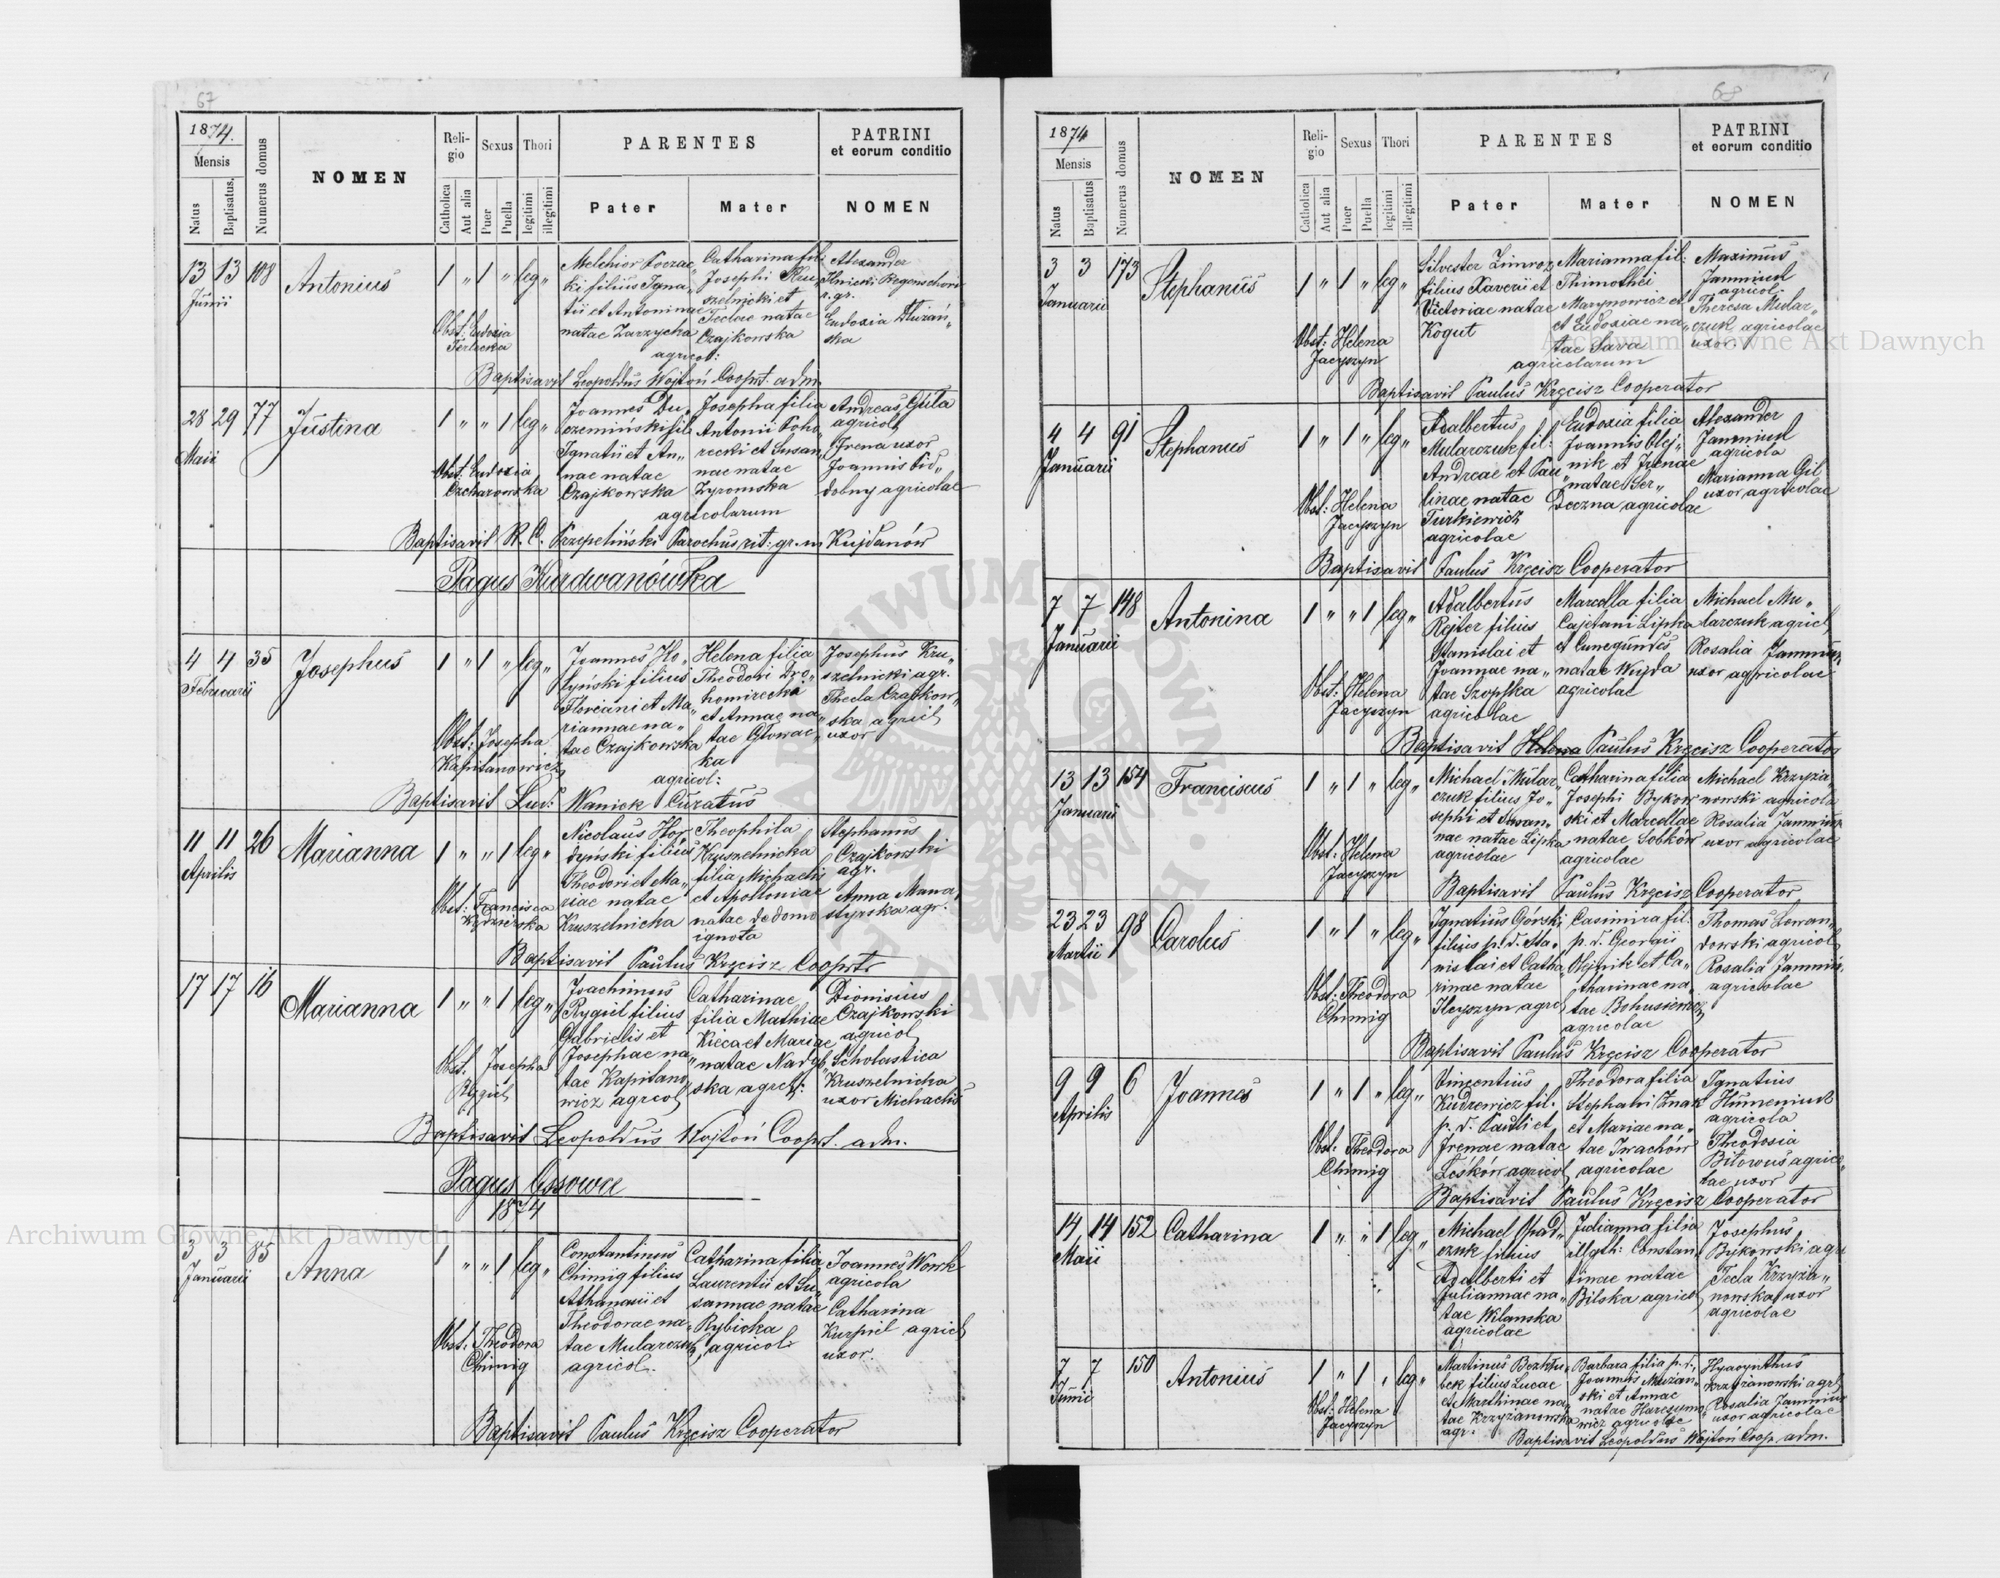 67
1874.
Mensis
Natus
Baptisatus.
Numerus domus
NOMEN
Religio
Catholica
Aut alia
Sexus
Puer
Puella
Thori
legitimi
illegitimi
PARENTES
Pater
Mater
PATRINI
et eorum conditio
NOMEN
13 13 108 Antonius 1 " 1 " leg "
Junii
Melchior
ki filius Igna„
tii et Antoninae
natae Zarzycka
Catharina fil:
Josephi Kru„
szelnicki et
Teclae natae
Czajkowska
agricol:
Alexander
Ilnicki
r. gr.
Eudoxia Dłużań„
ska
Obst: Eudoxia
Terlecka
Baptisavit Leopoldus Wojtoń Coopt. adm.
28 29 77 Justina 1 " " 1 leg "
Maii
Joannes Du„
czemiński fil:
Ignatii et An„
nae natae
Czajkowska
Josepha filia
Antonii Poho„
recki et Susan„
nae natae
Zyromska
agricolarum
Andreas Guła
agricol
Irena uxor
Joannis Pid„
dobny agricolae
Obst: Eudoxia
Czcharowska
Baptisavit R. C. Przepeliński Parochus rit: gr. in Kujdanów
Pagus Kurdwanówka
4 4 35 Josephus 1 " 1 " leg "
Februarii
Joannes Ho„
łyński filius
Floriani et Ma„
riannae na„
tae Czajkowska
Helena filia
Theodori Dro„
homirecki
et Annae na„
tae Głowac„
ka
agricol:
Josephus Kru„
szelnicki agr.
Thecla Czajkow„
ska agricol
uxor
Obst: Josepha
Kapitanowicz
Baptisavit Lud: Waniek Curatus
11 11 26 Marianna 1 " " 1 leg "
Aprilis
Nicolaus Hor„
dyński filius
Theodori et Ma„
riae natae
Kruszelnicka
Theophila
Kruszelnicka
filia Michaelis
et Apolloniae
natae de domo
ignota
Stephanus
Czajkowski
agr.
Anna Mana„
styrska agr.
Obst: Francisca
Kydzierska
Baptisavit Paulus Kręcisz Cooprtr
17 17 16 Marianna 1 " " 1 leg "
Joachimus
Rygiel filius
Gabrielis et
Josephae na„
tae Kapitano„
wicz agricol
Catharinae
filia Mathiae
Kieca et Mariae
natae Nadyb„
ska agricol:
Dionisius
Czajkowski
agricol
Scholastica
Kruszelnicka
uxor Michaelis
Obst. Josepha
Rygiel
Baptisavit Leopoldus Wojtoń Coopt. adm.
Pagus Ossowce
1874
3 3 85 Anna 1 " " 1 leg "
Januarii
Constantinus
Chimig filius
Athanasii et
Theodorae na„
tae Mularczuk
agricol.
Catharina filia
Laurentii et Su„
sannae natae
Rybicka
agricol.
Joannes Wowk
agricola
Catharina
Kurpiel agricol
uxor.
Obst: Theodora
Chimig
Baptisavit Paulus Kręcisz Cooperator
68
1874
Mensis
Natus
Baptisatus
Numerus domus
NOMEN
Religio
Catholica
Aut alia
Sexus
Puer
Puella
Thori
legitimi
illegitimi
PARENTES
Pater
Mater
PATRINI
et eorum conditio
NOMEN
3 3 173 Stephanus 1 " 1 " leg "
Januarii
Silvester Zimroz
filius Xaverii et
Victoriae natae
Kogut
Marianna fil:
Thimothei
Marynowicz et
et Eudoxiae na„
tae Sava
agricolarum
Maximus
Jamniuk
agricol.
Theresa Mular„
czuk agricolae
uxor.
Obst: Helena
Jacyszyn
Baptisavit Paulus Kręcisz Cooperator
4 4 91 Stephanus 1 " 1 " leg "
Januarii
Adalbertus
Mularczuk fil:
Andreae et Pau„
linae natae
Turkiewicz
agricolae
Eudoxia filia
Joannis Olej„
nik et Irenae
natae Ser„
Deczna agricolae
Alexander
Jamniuk
agricola
Marianna Gil
uxor agricolae
Obst: Helena
Jacyszyn
Baptisavit Paulus Kręcisz Cooperator
7 7 148 Antonina 1 " " 1 leg "
Januarii
Adalbertus
Rejter filius
Stanislai et
Joannae na„
tae Szopska
agricolae
Marcella filia
Cajetani Lipka
et Cunegundes
natae Wujda
agricolae
Michael Mu„
larczuk agricol
Rosalia Jamniuk
uxor agricolae
Obst: Helena
Jacyszyn
Baptisavit Helena Paulus Kręcisz Cooperator
13 13 154 Franciscus 1 " 1 " leg "
Januarii
Michael Mular„
czuk filius Jo„
sephi et Susan„
nae natae Lipka
agricolae
Catharina filia
Josephi Bykow
ski et Marcellae
natae Sobków
agricolae
Michael Krzyża
nowski agricola
Rosalia Jamniuk
uxor agricolae
Obst: Helena
Jacyszyn
Baptisavit Paulus Kręcisz Cooperator
23 23 98 Carolus 1 " 1 " leg "
Martii
Ignatius Górski
filius p. d. Sta„
nislai et Catha„
rinae natae
Ilczyszyn agrcl
Casimira fil:
p. d. Georgii
Olejnik et Ca„
tharinae na„
tae Bohusiewicz
agricolae
Thomas Lewan„
dowski agricol
Rosalia Jamniuk
agricolae
Obst: Theodora
Chimig
Baptisavit Paulus Kręcisz Cooperator
9 9 6 Joannes 1 " 1 " leg "
Aprilis
Vincentius
Kudrewicz fil.
p. d. Pauli et
Irenae natae
Leśków agricol
Theodora filia
Stephani Znak
et Mariae na„
tae Iwachów
agricolae
Ignatius
Humeniuk
agricola
Theodosia
Biłowus agrico„
lae uxor
Obst: Theodora
Chimig
Baptisavit Paulus Kręcisz Cooperator
14 14 152 Catharina 1 " " 1 leg "
Maii
Michael Opad„
czuk filius
Adalberti et
Juliannae na„
tae Wklanska
agricolae
Julianna filia
illgth: Constan„
tinae natae
Bilska agricol
Josephus
Bykowski agr
Tecla Krzyża„
nowska uxor
agricolae
7 7 150 Antonius 1 " 1 " leg "
Junii
Martinus Bezkłu„
bek filius Lucae
et Marthinae na„
tae Krzyżanowska
agr.
Barbara filia p. d.
Joannis Muzań„
ski et Annae
natae Harczymo„
wicz agricolae
Hyacynthus
Krzyżanowski agrl
Rosalia Jamniuk
uxor agricolae
Obst: Helena
Jacyszyn
Baptisavit Leopoldus Wojtoń Coop. adm.
Archiwum Główne Akt Dawnych
Archiwum Główne Akt Dawnych